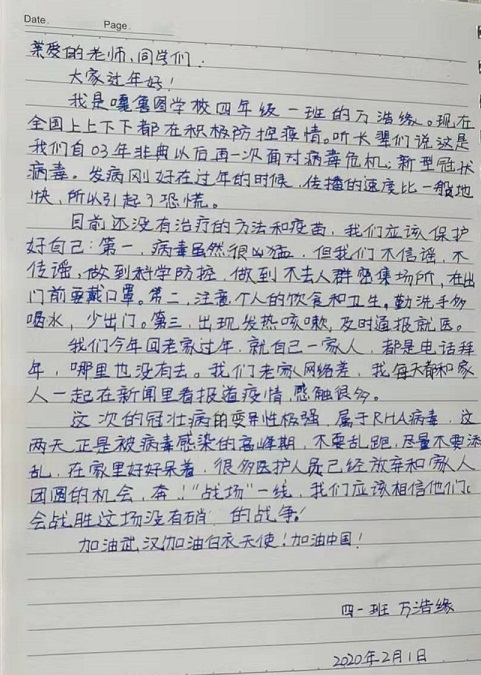 Date.    Page.
亲爱的老师,同学们:
大家过年好!
我是噶鲁图学校四年级一班的万浩缘。现在
全国上上下下都在积极防控疫情。听长辈们说这是
我们自03年非典以后再一次面对病毒危机:新型冠状
病毒。发病刚好在过年的时候,传播的速度比一般地
快,所以引起了恐慌。
目前还没有治疗的方法和疫苗,我们应该保护
好自己:第一,病毒虽然很凶猛,但我们不信谣,不
传谣,做到科学防控,做到不去人群密集场所,在出
门前要戴口罩。第二,注意个人的饮食和卫生。勤洗手多
喝水,少出门。第三,出现发热咳嗽,及时通报就医。
我们今年回老家过年,就自己一家人,都是电话拜
年,哪里也没有去。我们老家网络差,我每天都和家
人一起在新闻里看报道疫情,感触很多。
这次的冠状病的变异性极强,属于RHA病毒,这
两天正是被病毒感染的高峰期,不要乱跑,尽量不要添
乱,在家里好好呆着,很多医护人员已经放弃和家人
团圆的机会,奔!"战场"一线,我们应该相信他们
会战胜这场没有硝 的战争!
加油武汉!加油白衣天使!加油中国!
四一班 万浩缘
2020年2月1日